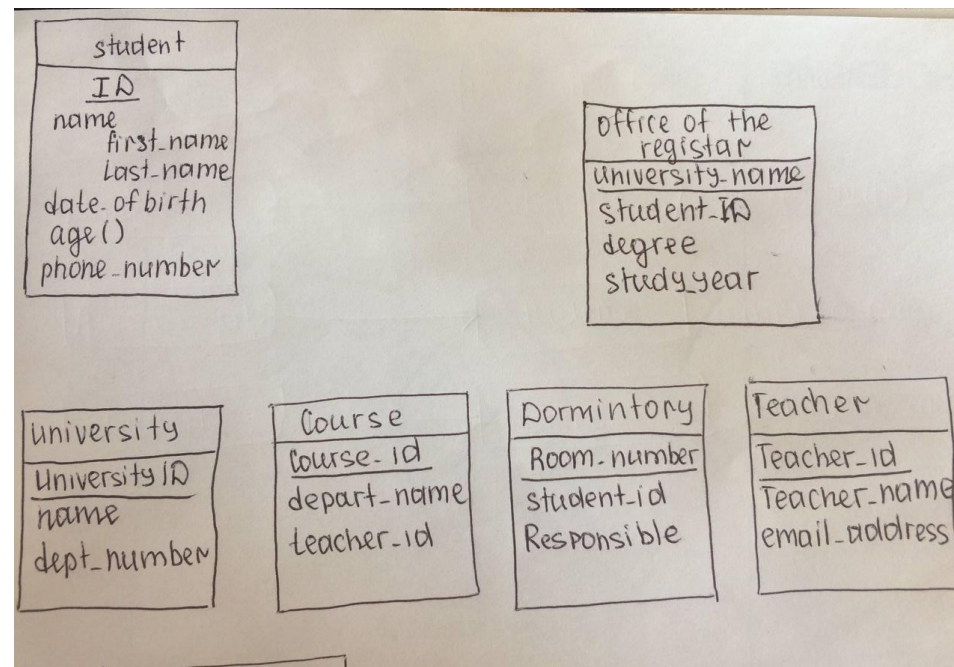 student
ID
name
first_name
Last_name
date_of birth
age()
phone_number
office of the
registar
university_name
student_ID
degree
study_year
university
University ID
name
dept_number
Course
Course_id
depart_name
teacher_id
Dormintory
Room_number
student_id
Responsible
Teacher
Teacher_id
Teacher_name
email_address